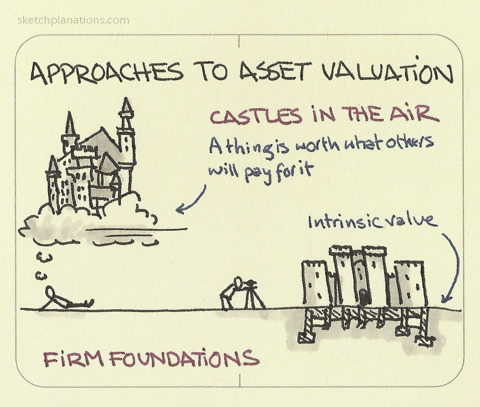 sketchplanations.com
APPROACHES TO ASSET VALUATION
CASTLES IN THE AIR
A thing is worth what others
will pay for it
Intrinsic value
FIRM FOUNDATIONS